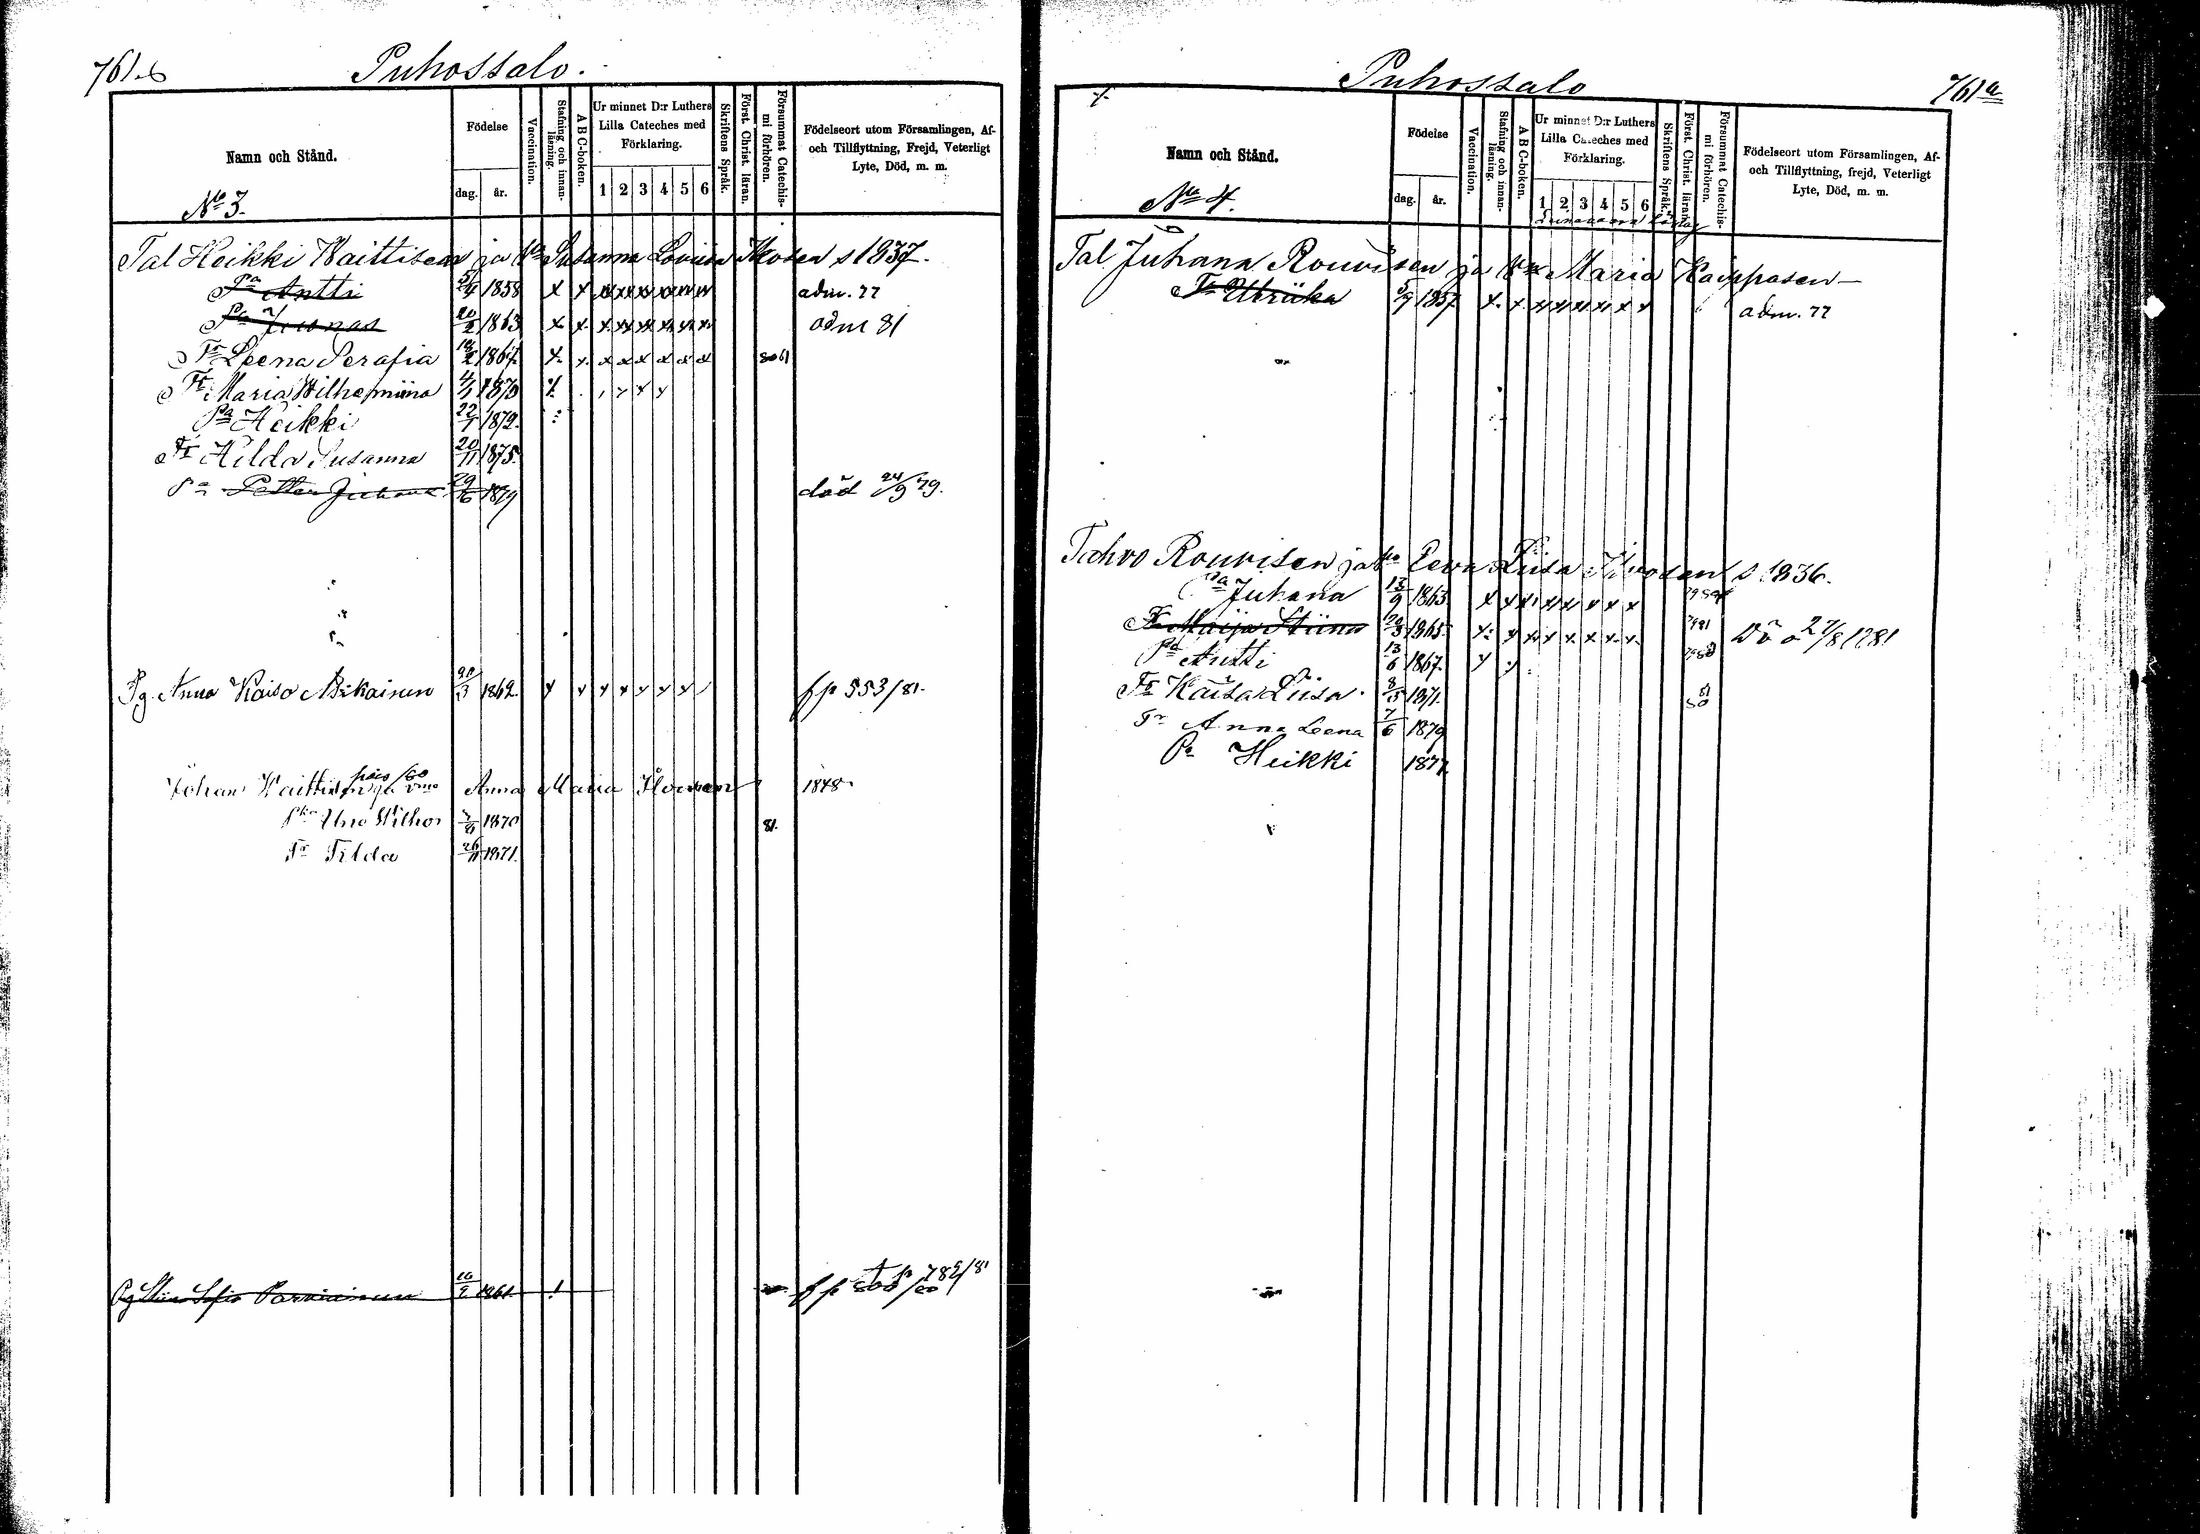 761.b
Puhossalo.
Namn och Stånd.
Födelse
dag.
år.
Vaccination.
Stafning och innanläsning.
A B C-boken.
Ur minnet D:r Luthers Lilla Cateches med Förklaring.
1 2 3 4 5 6
Skriftens Språk.
Först. Christ. läran.
Försummat Catechismi förhören.
Födelseort utom Församlingen, Af- och Tillflyttning, Frejd, Veterligt Lyte, Död, m. m.
No 3.
Tal Heikki Waittisen ja Susanna Loviisa s 1837.
Pa Antti 1858 x x adm. 77
Pa Joonas 20/2 1863 x x x xx xx adm 81
Tr Leena Serafia 1867 x x x x x x x x
Tr Maria Wilhelmiina 1870
Pa Heikki 22/7 1872.
Tr Hilda Susanna 20/11 1875.
Pa Petter Juhana 29/6 1879 död 24/9 79.
Pg. Anna Kaisa Asikainen 1862 x x x x x x x fr 553/81.
Johan Waittinen ja vmo Anna Maria 1848
Uno Wilhor 1870 81.
Tr Tilda 26/11 1871.
Pg Stiina Sofia Parviainen 1861
789/81
Puhossalo
761a
Namn och Stånd.
Födelse
dag.
år.
Vaccination.
Stafning och innanläsning.
A B C-boken.
Ur minnet D:r Luthers Lilla Cateches med Förklaring.
1 2 3 4 5 6
Skriftens Språk.
Först. Christ. läran.
Försummat Catechismi förhören.
Födelseort utom Församlingen, Af- och Tillflyttning, frejd, Veterligt Lyte, Död, m. m.
No 4.
Tal Juhana Rouvisen ja Maria Kaippasen
Tr Ulriika 5/9 1857 x x x x x x x x adm. 77
Tahvo Rouvisen ja Eeva Liisa s 1836.
Pa Juhana 13/9 1863 x x x x x x x x
Tr Maija Stiina 1865 x x x x x x x x 27/8 1881
Pa Antti 13/6 1867 x x
Tr Kaisa Liisa 8/5 1871.
Tr Anna Leena 7/6 1879
Pa Heikki 1877.